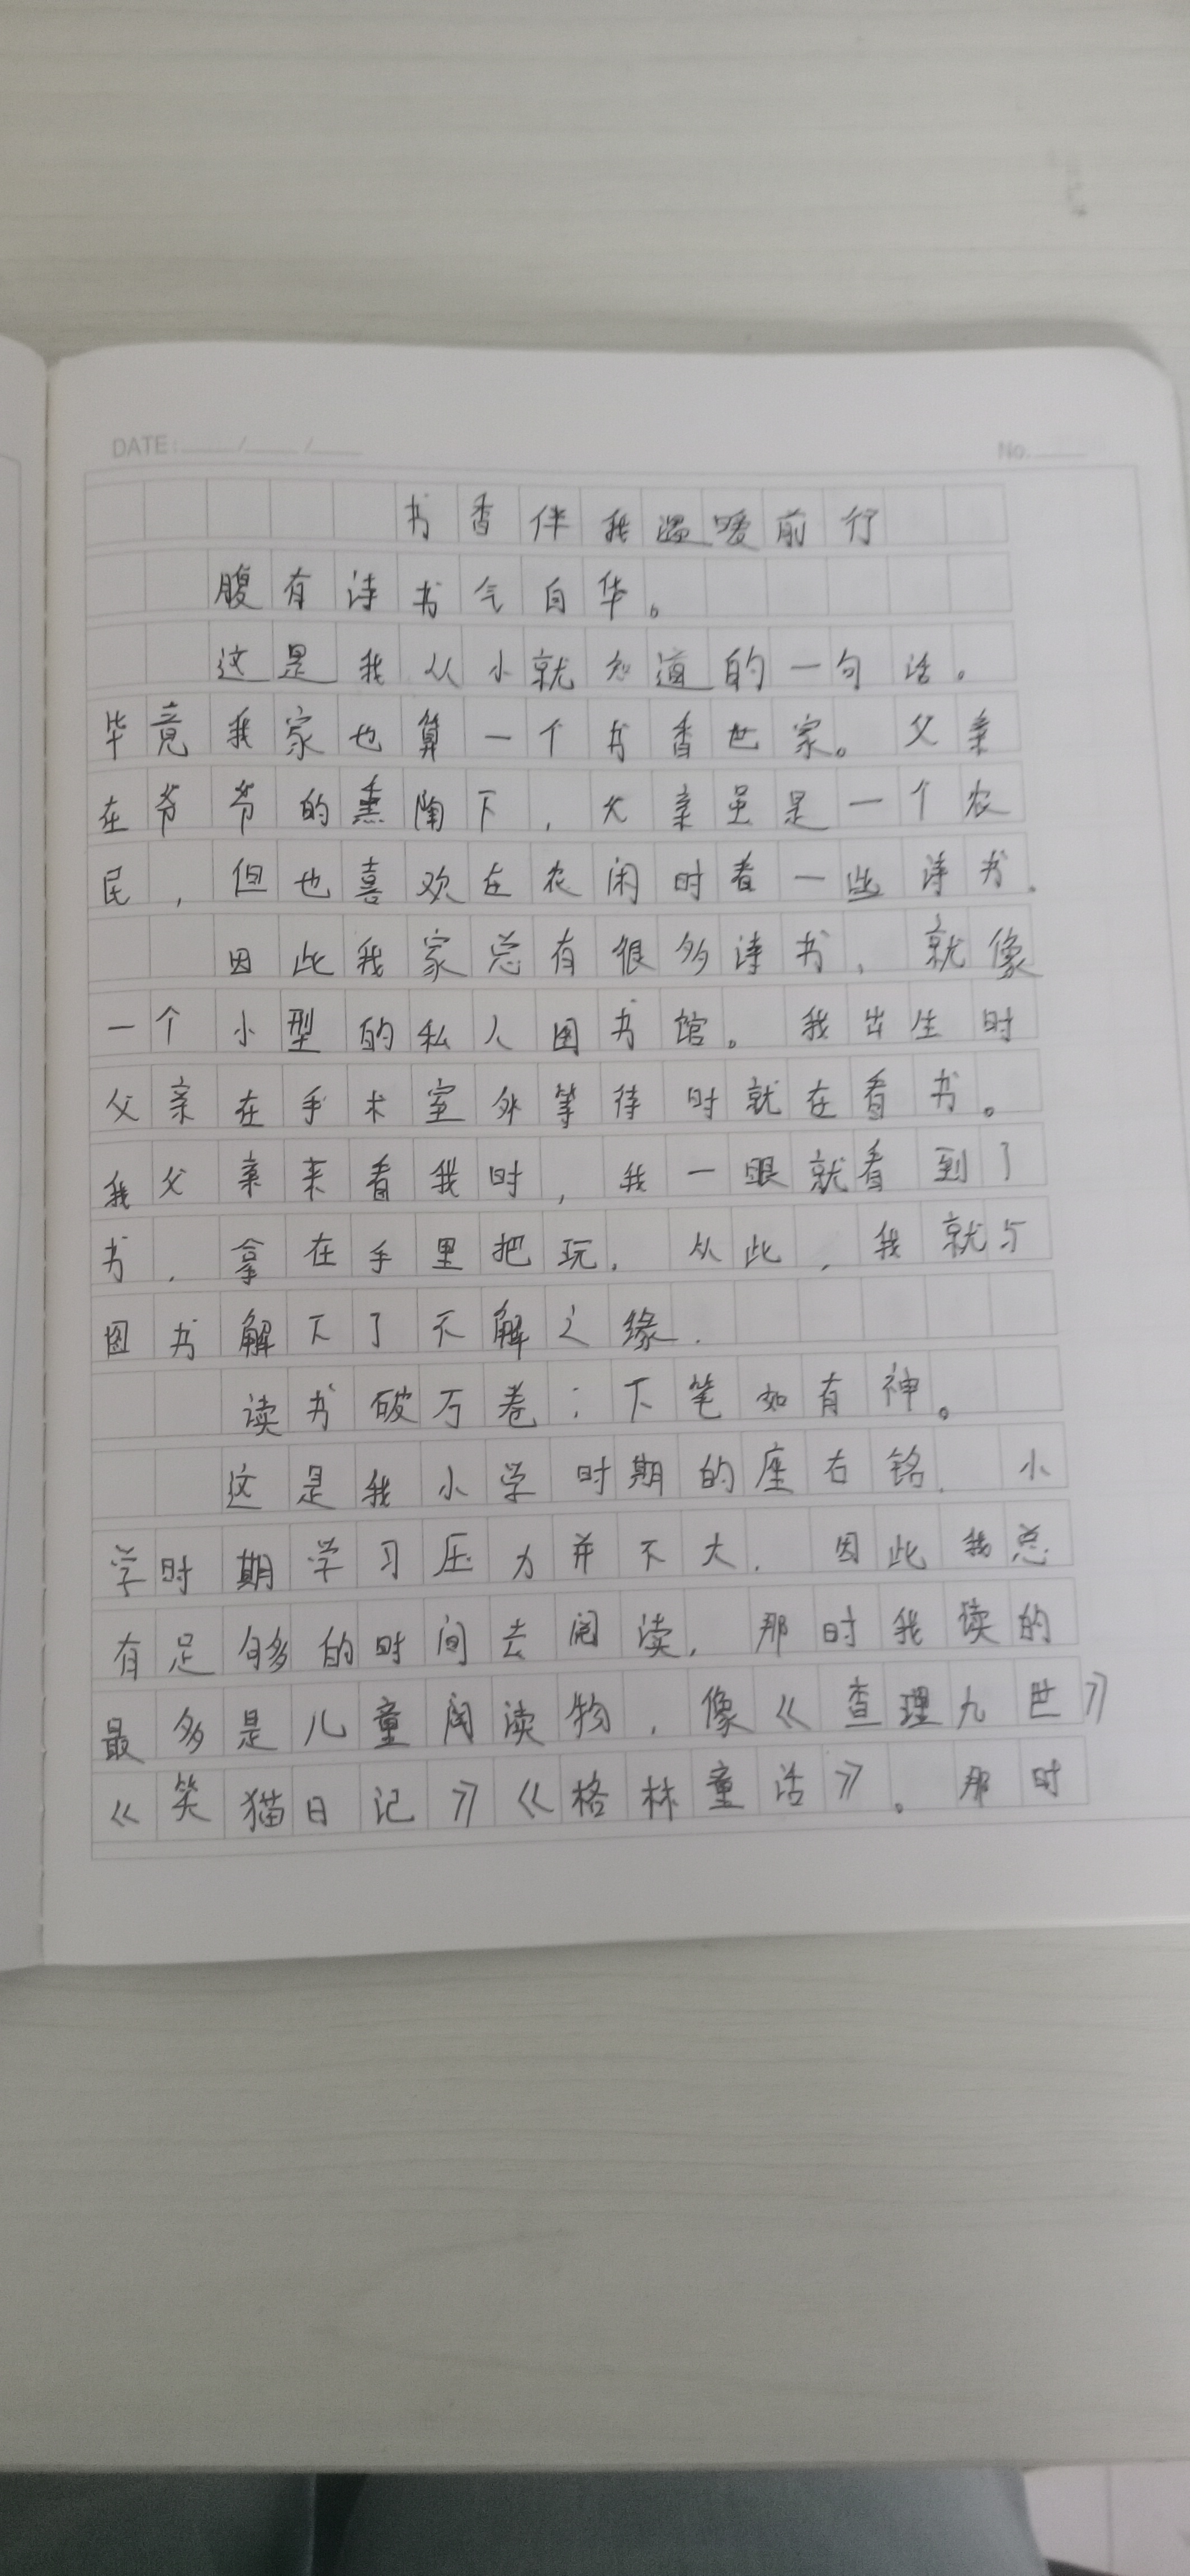 DATE: / /
No.
书香伴我温暖前行
腹有诗书气自华。
这是我从小就知道的一句话。
毕竟我家也算一个书香世家。父亲
在爷爷的熏陶下，父亲虽是一个农
民，但也喜欢在农闲时看一些诗书.
因此我家总有很多诗书，就像
一个小型的私人图书馆。我出生时
父亲在手术室外等待时就在看书。
我父亲来看我时，我一眼就看到了
书，拿在手里把玩.从此，我就与
图书解下了不解之缘.
读书破万卷；下笔如有神。
这是我小学时期的座右铭.小
学时期学习压力并不大.因此我总
有足够的时间去阅读.那时我读的
最多是儿童阅读物，像《查理九世》
《笑猫日记》《格林童话》。那时